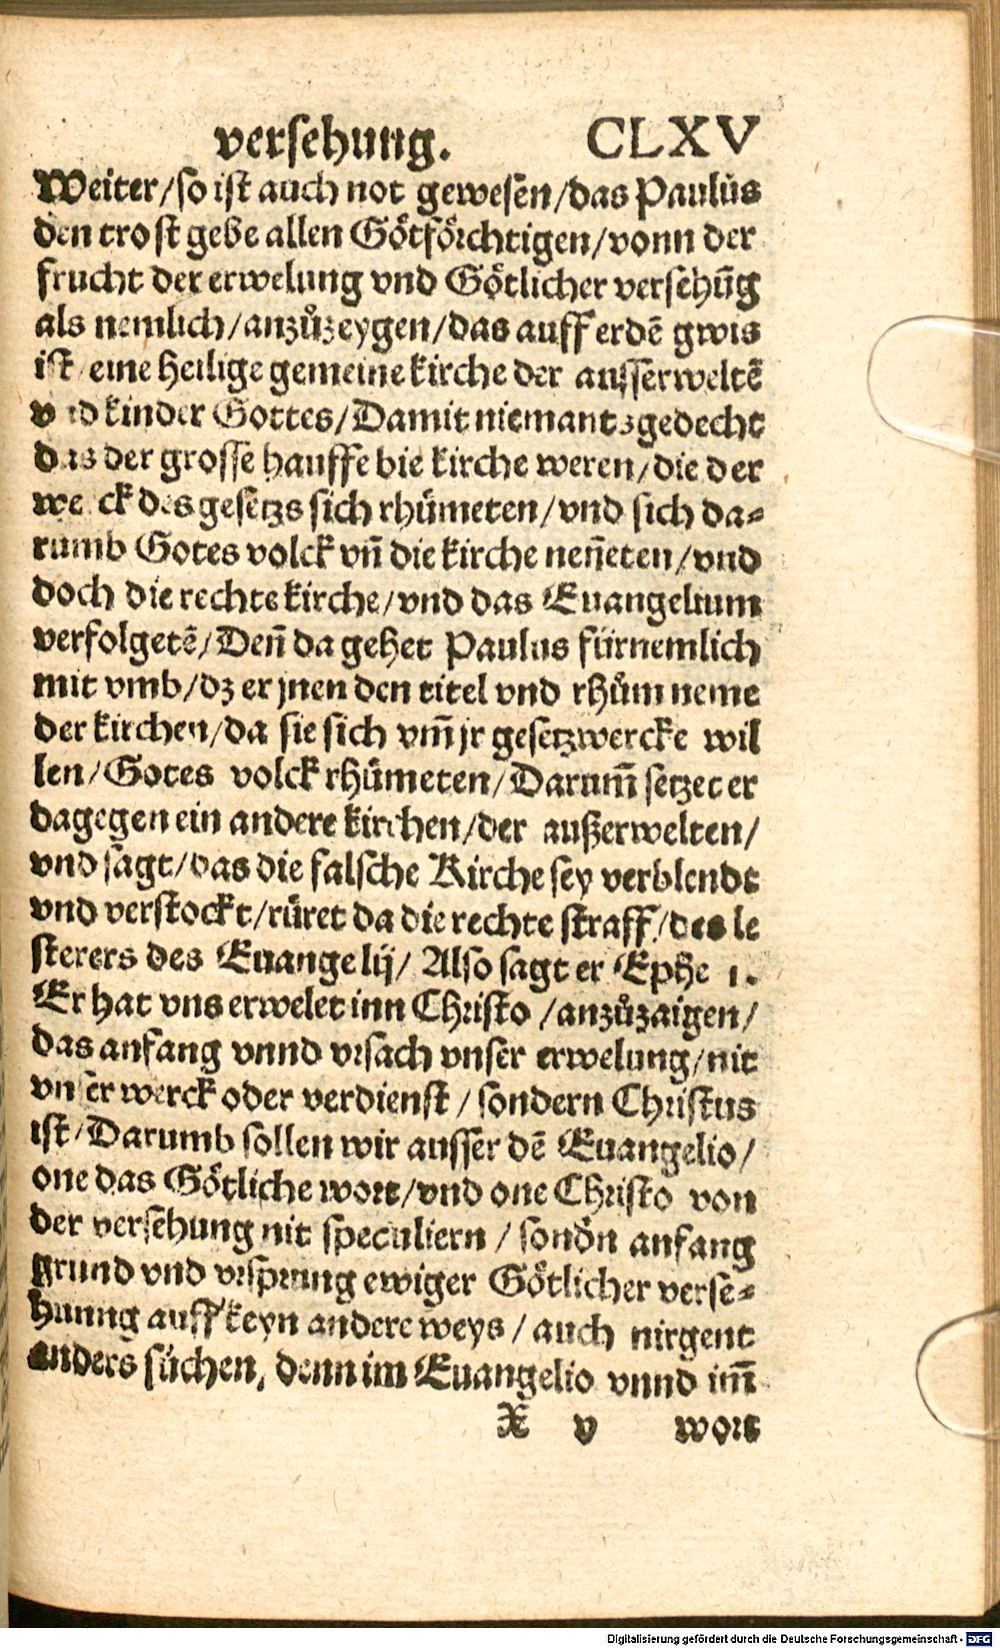 versehung. CLXV
Weiter/so ist auch not gewesen/das Paulus
den trost gebe allen Götförchtigen/vonn der
frucht der erwelung vnd Götlicher versehūg
als nemlich/anzůzeygen/das auff erdē gwis
ist/eine heilige gemeine kirche der ausserweltē
vnd kinder Gottes/Damit niemants gedecht
das der grosse hauffe bie kirche weren/die der
werck des gesetzs sich rhümeten/vnd sich da-
rumb Gotes volck vn̄ die kirche nen̄eten/vnd
doch die rechte kirche/vnd das Euangelium
verfolgetē/Den̄ da gehet Paulus fürnemlich
mit vmb/dz er jnen den titel vnd rhům neme
der kirchen/da sie sich vm̄ jr gesetzwercke wil
len/Gotes volck rhümeten/Darum̄ setzet er
dagegen ein andere kirchen/der außerwelten/
vnd sagt/das die falsche Kirche sey verblendt
vnd verstockt/rüret da die rechte straff/des le
sterers des Euangelij/ Also sagt er Ephe 1.
Er hat vns erwelet inn Christo /anzůzaigen/
das anfang vnnd vrsach vnser erwelung/nit
vnser werck oder verdienst / sondern Christus
ist/Darumb sollen wir ausser dē Euangelio/
one das Götliche wort/vnd one Christo von
der versehung nit speculiern / sondn anfang
grund vnd vrsprung ewiger Götlicher verse-
hunng auff keyn andere weys / auch nirgent
anders süchen, denn im Euangelio vnnd im̄
X v wort
Digitalisierung gefördert durch die Deutsche Forschungsgemeinschaft - DFG